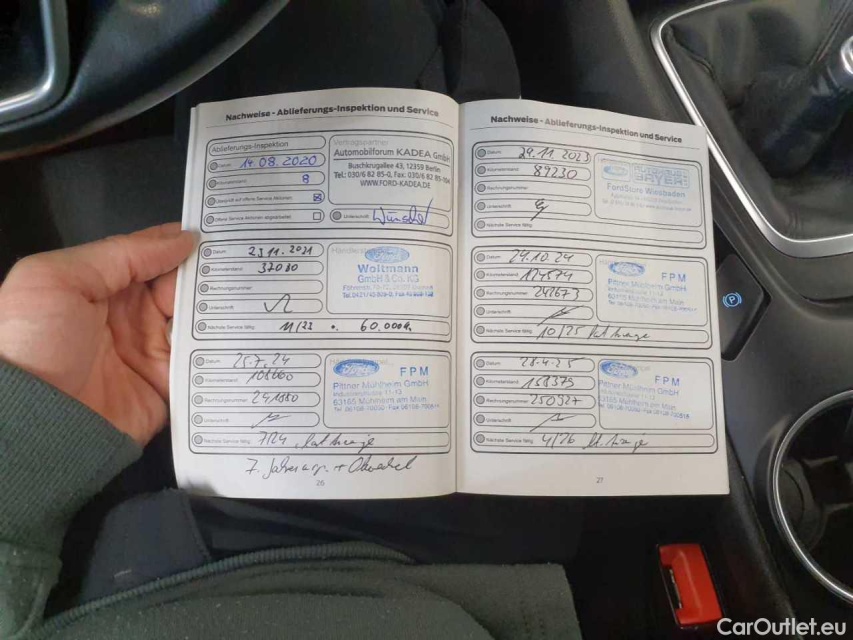 Nachweise - Ablieferungs-Inspektion und Service
Ablieferungs-Inspektion
Datum 14.08.2020
Kilometerstand 8
Überprüft auf offene Service Aktionen
Offene Service Aktionen abgearbeitet
Unterschrift
Vertragspartner
Automobilforum KADEA GmbH
Buschkrugallee 43, 12359 Berlin
Tel.: 030/6 82 85-0, Fax: 030/6 82 85-
WWW.FORD-KADEA.DE
Datum 23.11.2021
Kilometerstand 37080
Rechnungsnummer
Unterschrift
Nächste Service fällig 11/23 60.000
Ford
Woltmann
GmbH & Co. KG
Datum 25.7.24
Kilometerstand 108660
Rechnungsnummer 241180
Unterschrift
Nächste Service fällig 7/24
Ford FPM
Pittner Mühlheim GmbH
63165 Mühlheim am Main
7.
26
Nachweise - Ablieferungs-Inspektion und Service
Datum 29.11.2023
Kilometerstand 89230
Rechnungsnummer
Unterschrift
Nächste Service fällig
Ford
FordStore Wiesbaden
Datum 29.10.24
Kilometerstand 124574
Rechnungsnummer 242673
Unterschrift
Nächste Service fällig 10/25
Ford FPM
Pittner Mühlheim GmbH
63165 Mühlheim am Main
Datum 28.4.25
Kilometerstand 151379
Rechnungsnummer 250327
Unterschrift
Nächste Service fällig 4/26
Ford FPM
Pittner Mühlheim GmbH
63165 Mühlheim am Main
27
P
CarOutlet.eu